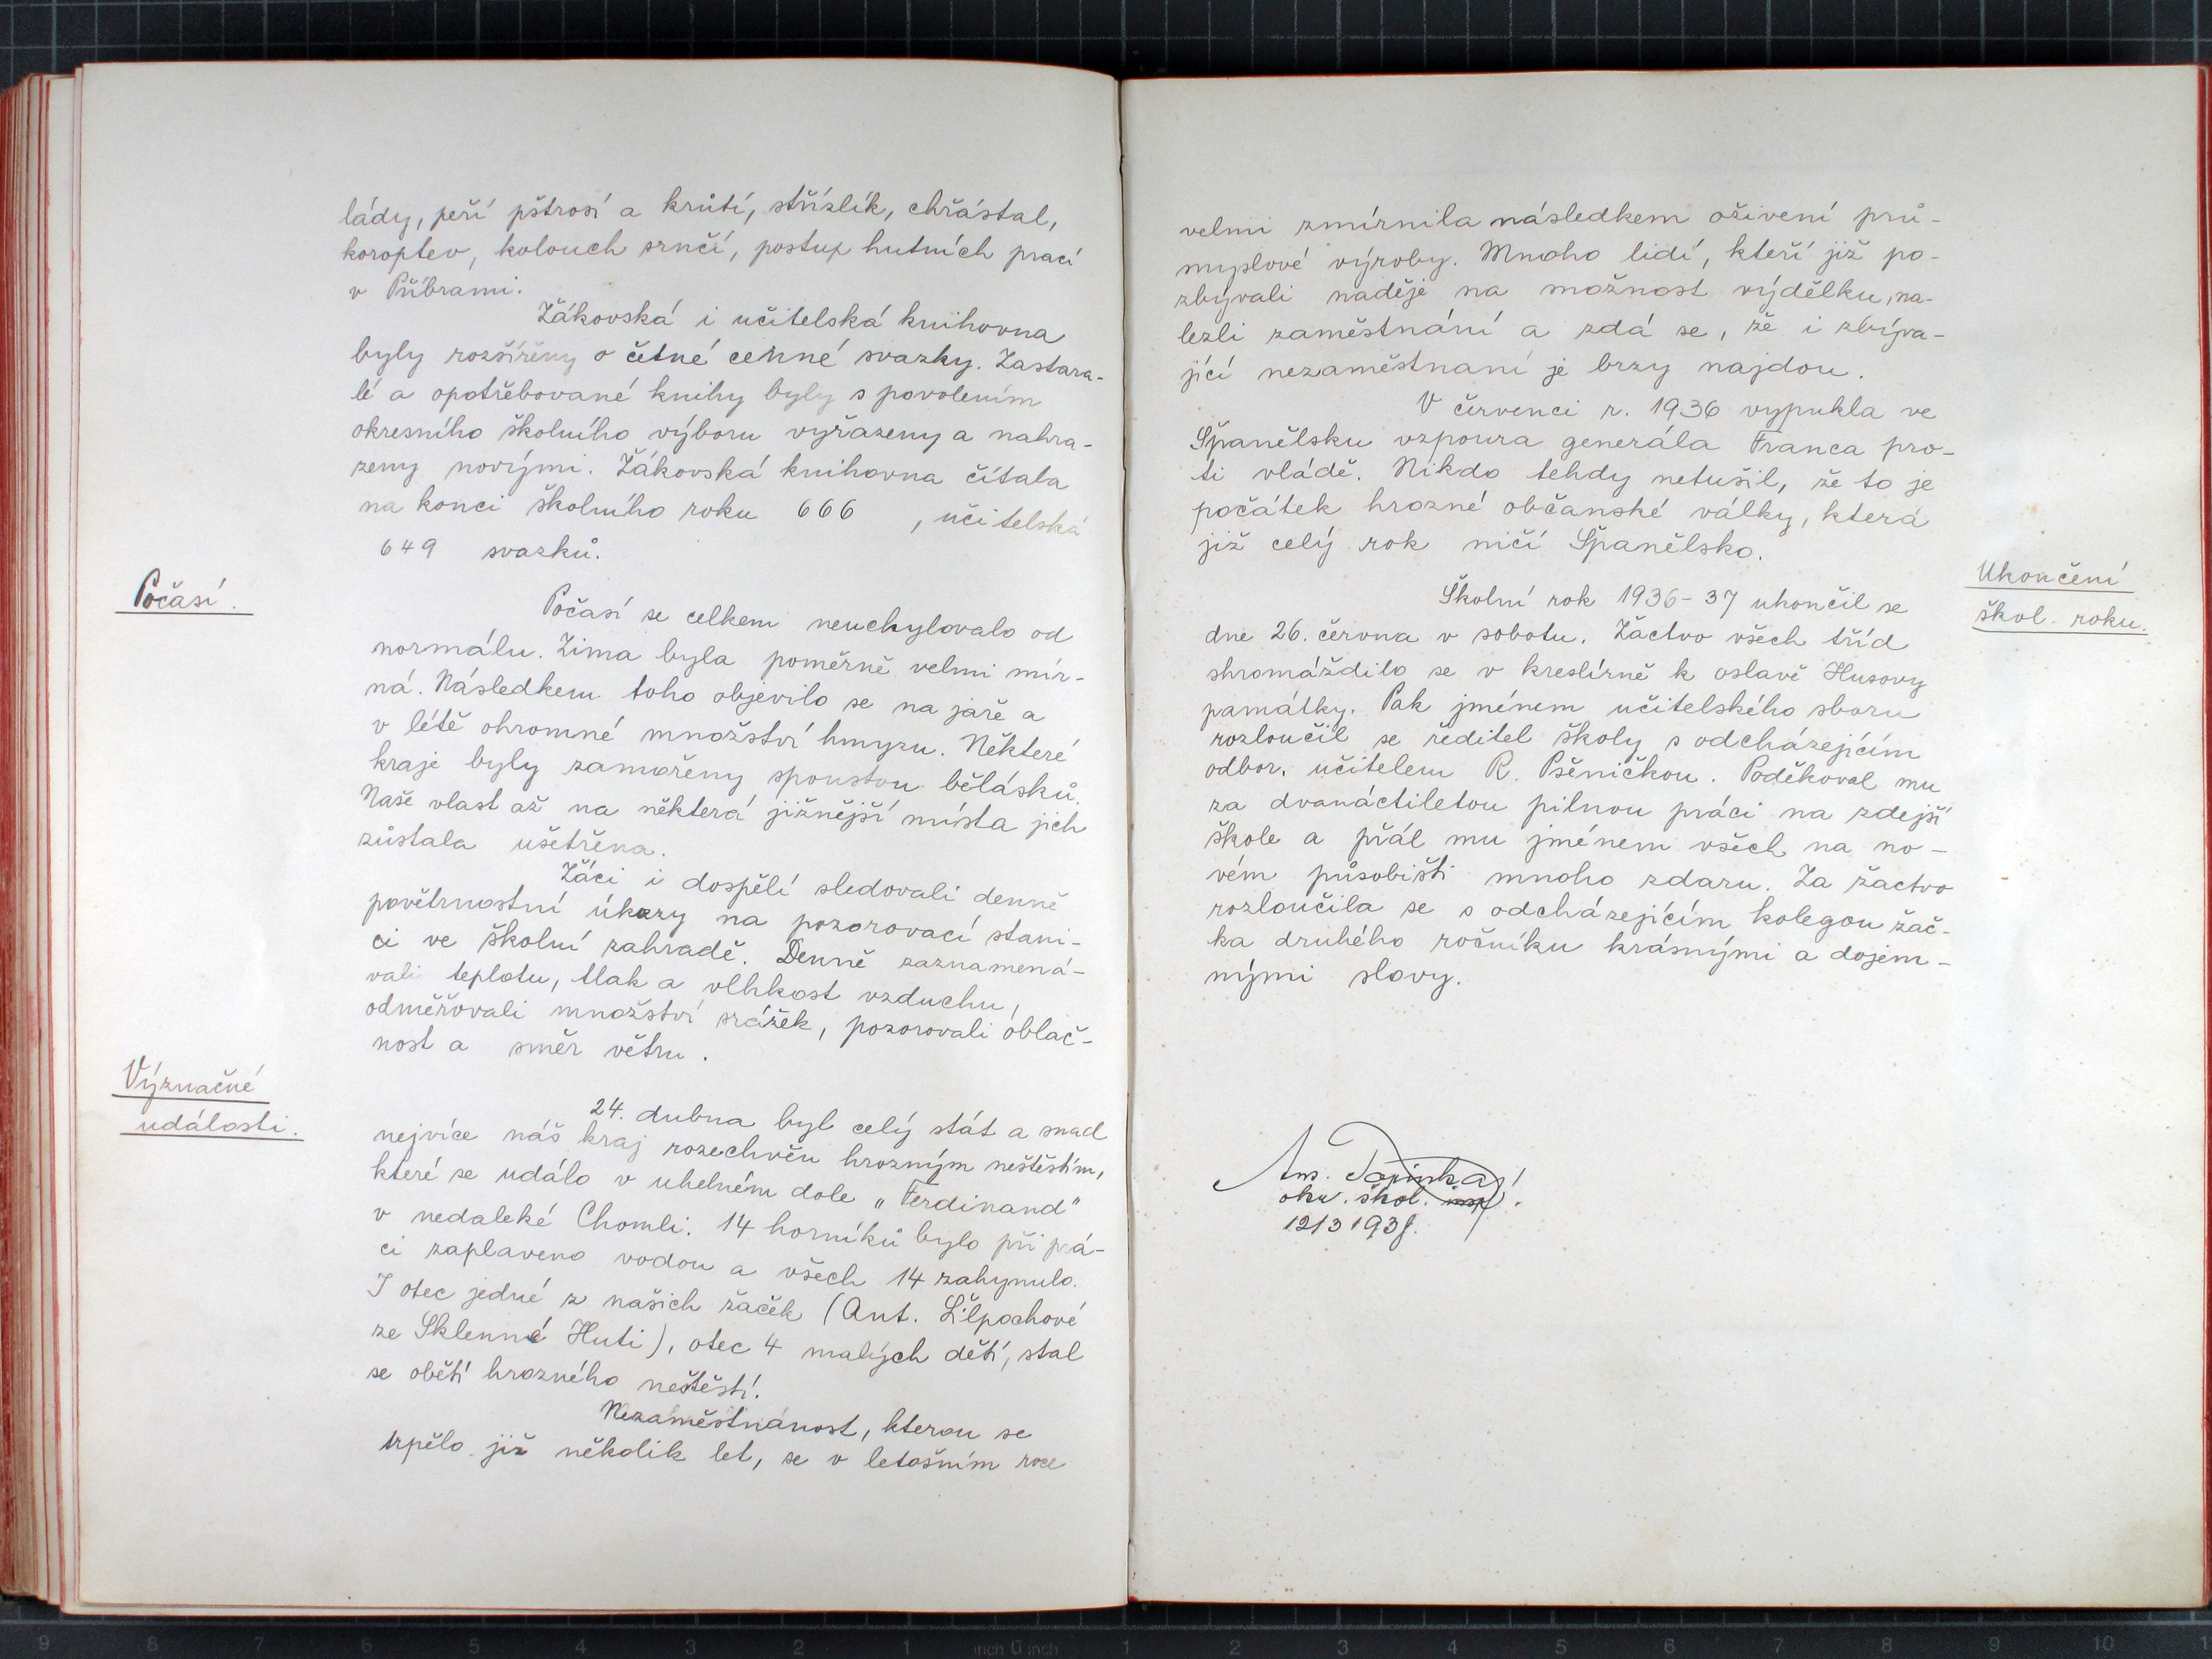 lády, peří pštrosí a krůtí, střízlík, chřástal,
koroptev, kolouch srnčí, postup hutních prací
v Příbrami.
Žákovská i učitelská knihovna
byly rozšířeny o četné cenné svazky. Zastara-
lé a opotřebované knihy byly s povolením
okresního školního výboru vyřazeny a nahra-
zeny novými. Žákovská knihovna čítala
na konci školního roku 666 , učitelská
649 svazků.
Počasí.
Počasí se celkem neuchylovalo od
normálu. Zima byla poměrně velmi mír-
ná. Následkem toho objevilo se na jaře a
v létě ohromné množství hmyzu. Některé
kraje byly zamořeny spoustou bělásků.
Naše vlast až na některá jižnější místa jich
zůstala ušetřena.
Žáci i dospělí sledovali denně
povětrnostní úkazy na pozorovací stani-
ci ve školní zahradě. Denně zaznamená-
vali teplotu, tlak a vlhkost vzduchu,
odměřovali množství srážek, pozorovali oblač-
nost a směr větru.
Význačné
události.
24. dubna byl celý stát a snad
nejvíce náš kraj rozechvěn hrozným neštěstím,
které se událo v uhelném dole „Ferdinand"
v nedaleké Chomli. 14 horníků bylo při prá-
ci zaplaveno vodou a všech 14 zahynulo.
I otec jedné z našich žaček (Ant.
ze Sklenné Huti), otec 4 malých dětí, stal
se obětí hrozného neštěstí.
Nezaměstnanost, kterou se
trpělo již několik let, se v letošním roce
velmi zmírnila následkem oživení prů-
myslové výroby. Mnoho lidí, kteří již po-
zbývali naděje na možnost výdělku, na-
lezli zaměstnání a zdá se, že i zbýva-
jící nezaměstnaní je brzy najdou.
V červenci r. 1936 vypukla ve
Španělsku vzpoura generála Franca pro-
ti vládě. Nikdo tehdy netušil, že to je
počátek hrozné občanské války, která
již celý rok ničí Španělsko.
Ukončení
škol. roku.
Školní rok 1936-37 ukončil se
dne 26. června v sobotu. Žáctvo všech tříd
shromáždilo se v kreslírně k oslavě Husovy
památky. Pak jménem učitelského sboru
rozloučil se ředitel školy s odcházejícím
odbor. učitelem R. Pšeničkou. Poděkoval mu
za dvanáctiletou pilnou práci na zdejší
škole a přál mu jménem všech na no-
vém působišti mnoho zdaru. Za žactvo
rozloučila se s odcházejícím kolegou žač-
ka druhého ročníku krásnými a dojem-
nými slovy.
okr. škol. insp.